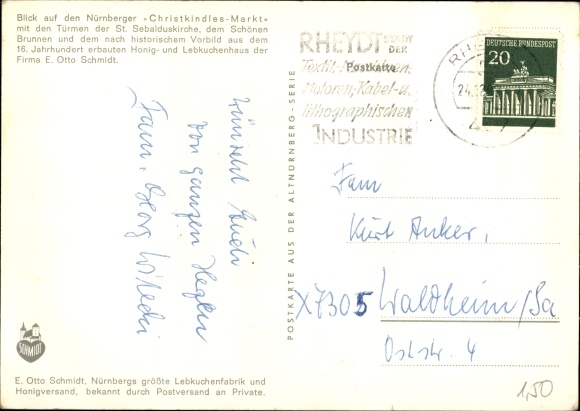 Blick auf den Nürnberger »Christkindles-Markt«
mit den Türmen der St. Sebalduskirche, dem Schönen
Brunnen und dem nach historischem Vorbild aus dem
16. Jahrhundert erbauten Honig- und Lebkuchenhaus der
Firma E. Otto Schmidt.
wünscht Euch
von ganzem
Fam. Georg
SCHMIDT
E. Otto Schmidt, Nürnbergs größte Lebkuchenfabrik und
Honigversand, bekannt durch Postversand an Private.
POSTKARTE AUS DER ALTNÜRNBERG-SERIE
RHEYDT STADT
DER
Postkarte
Textil-,
Motoren-, Kabel-u.
lithographischen
INDUSTRIE
DEUTSCHE BUNDESPOST
20
Fam
Kurt Anker,
X7305 Waldheim/Sa
Oststr. 4
1,50